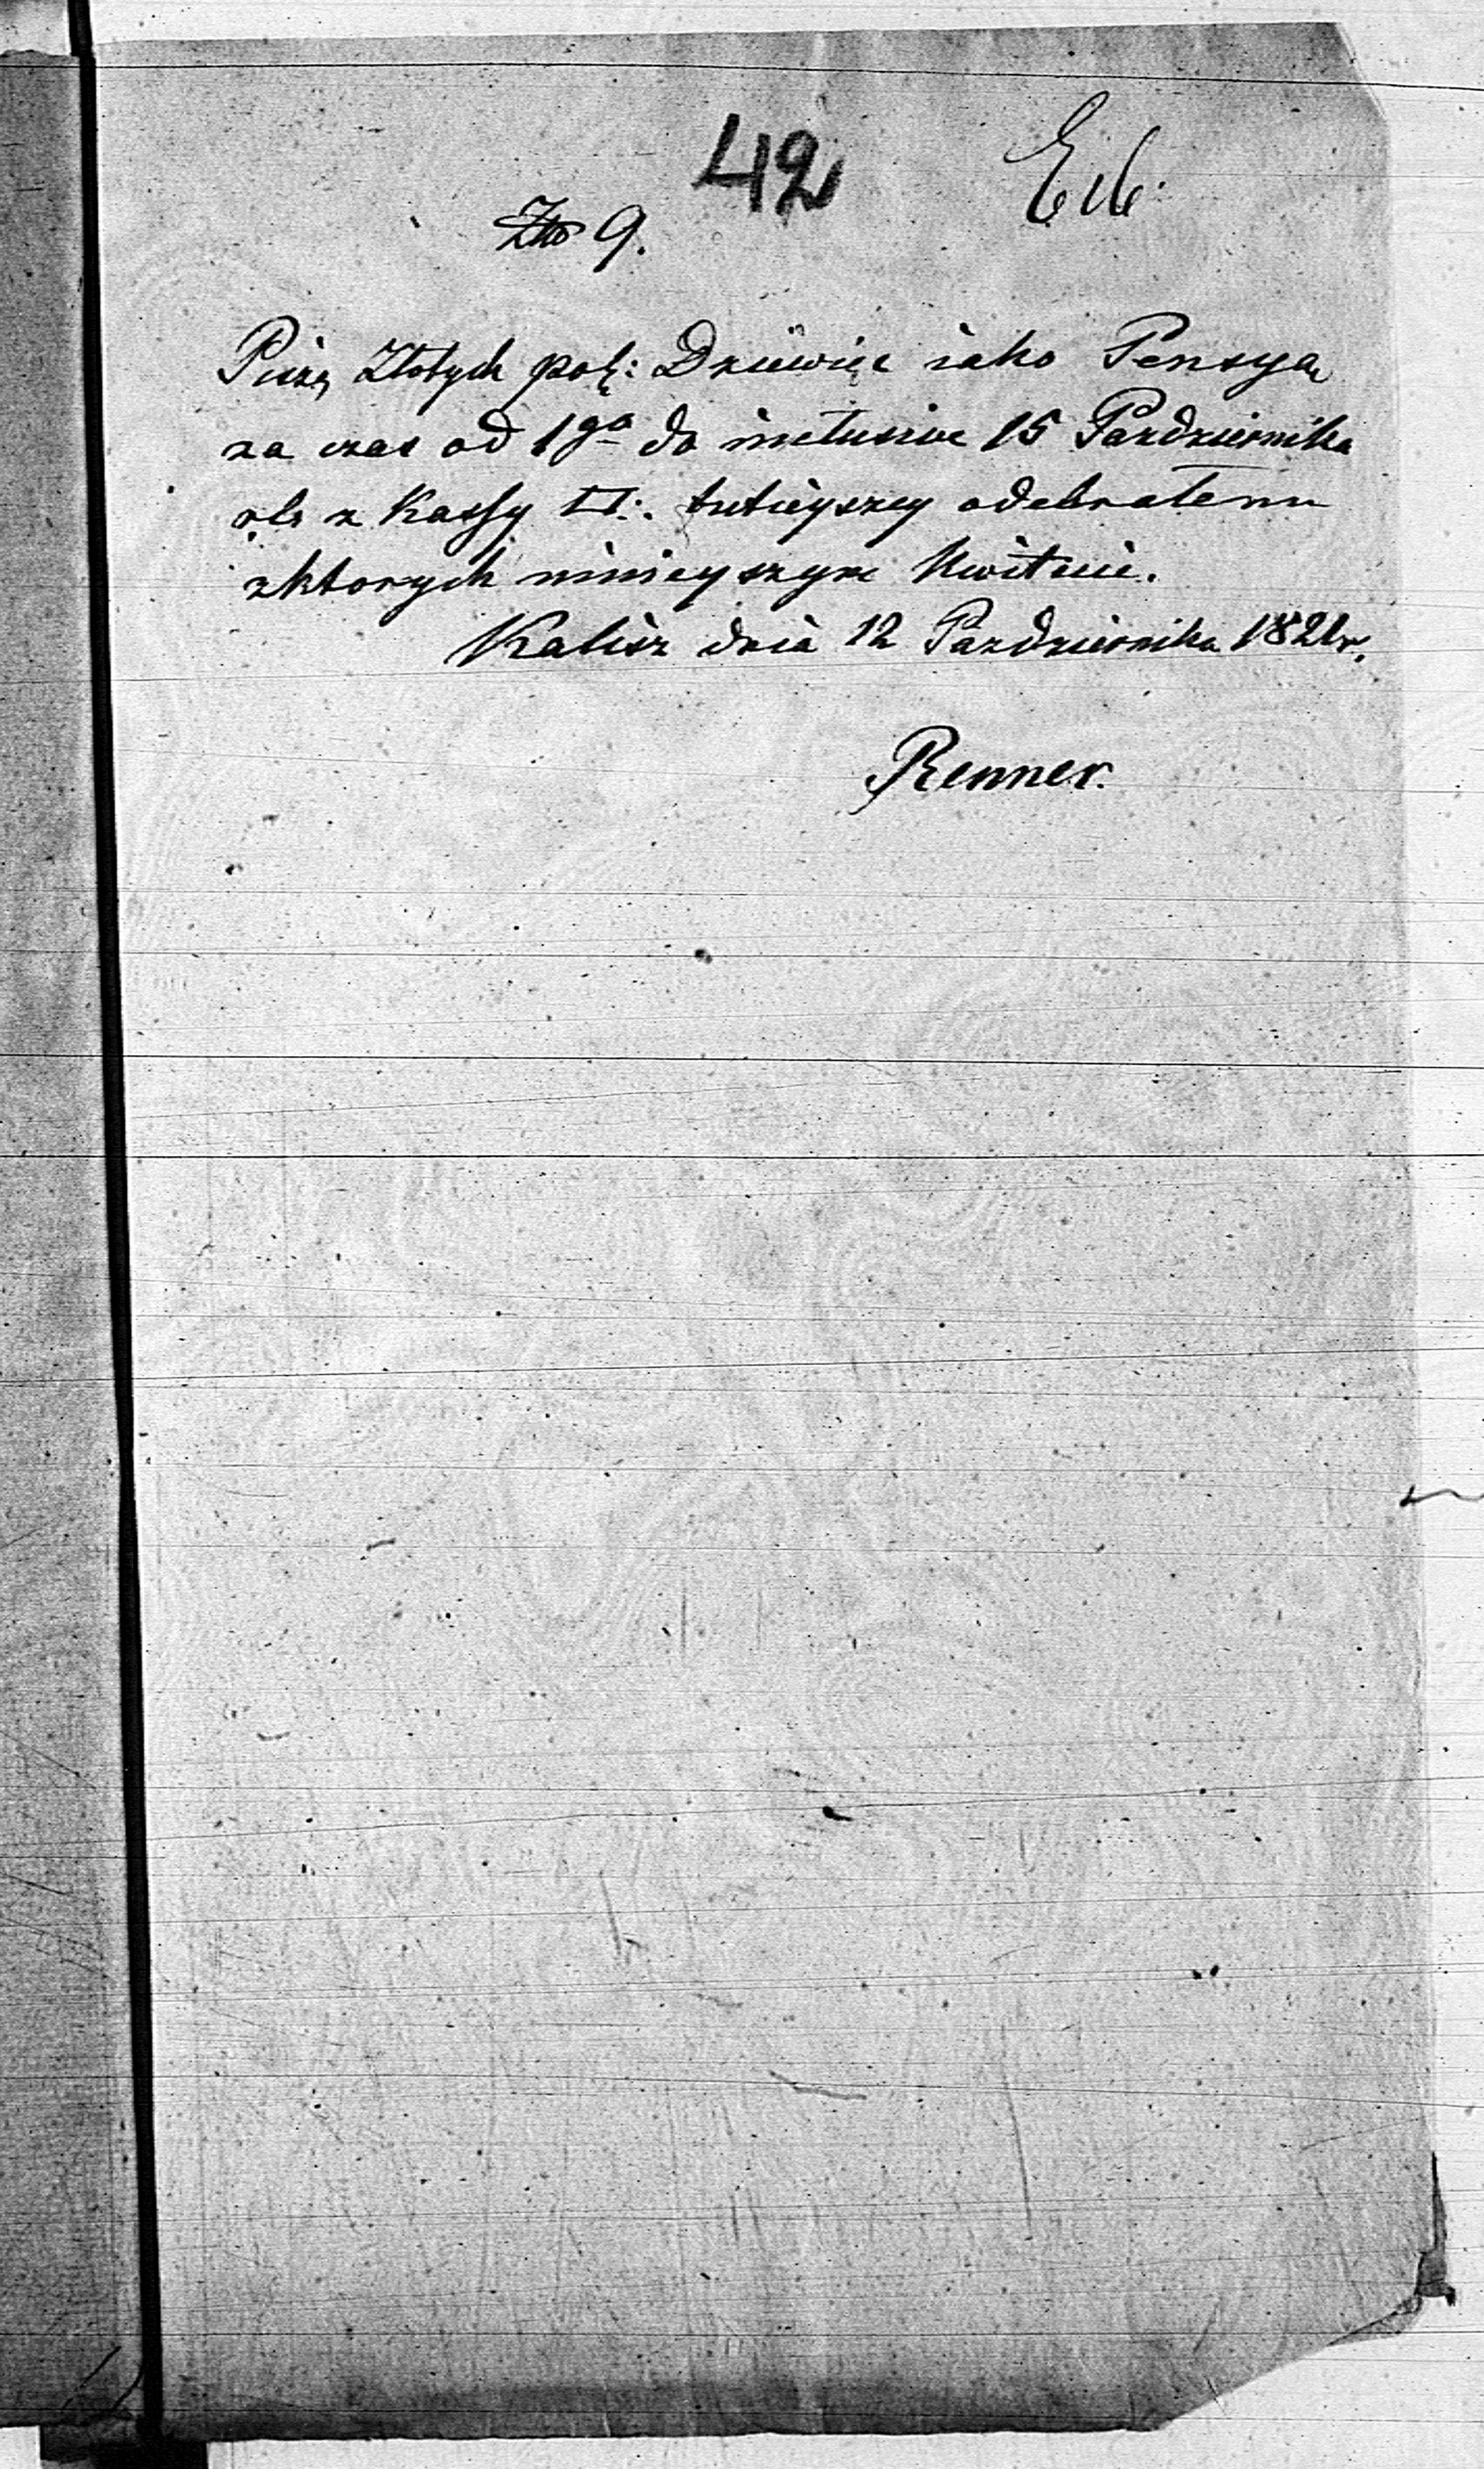 42
9.
Złotych pol: Dziewięc iako Pensya
za czas od 1go do inclusive 15 Pazdziernika
z Kassy tuteyszey odebrałem
zktorych ninieyszym kwituie.
Kalisz dnia 12 Pazdziernika 1821r.
Renner.